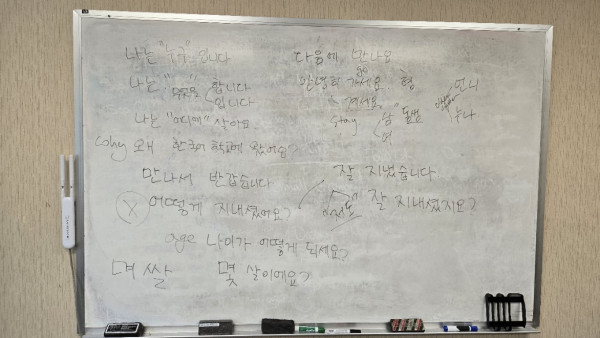 나는 "누구" 입니다
나는 "무엇을 합니다
입니다
나는 "어디에" 살아요.
why 왜 한국어 학교에 왔어요?
만나서 반갑습니다
X 어떻게 지내셨어요?
age 나이가 어떻게 되세요?
며 쌀 몇 살이에요?
다음에 만나요
안녕히 가세요.
계세요.
stay.
형
언니
남 동생
여
누나
잘 지냈습니다
잘 지내셨지요?